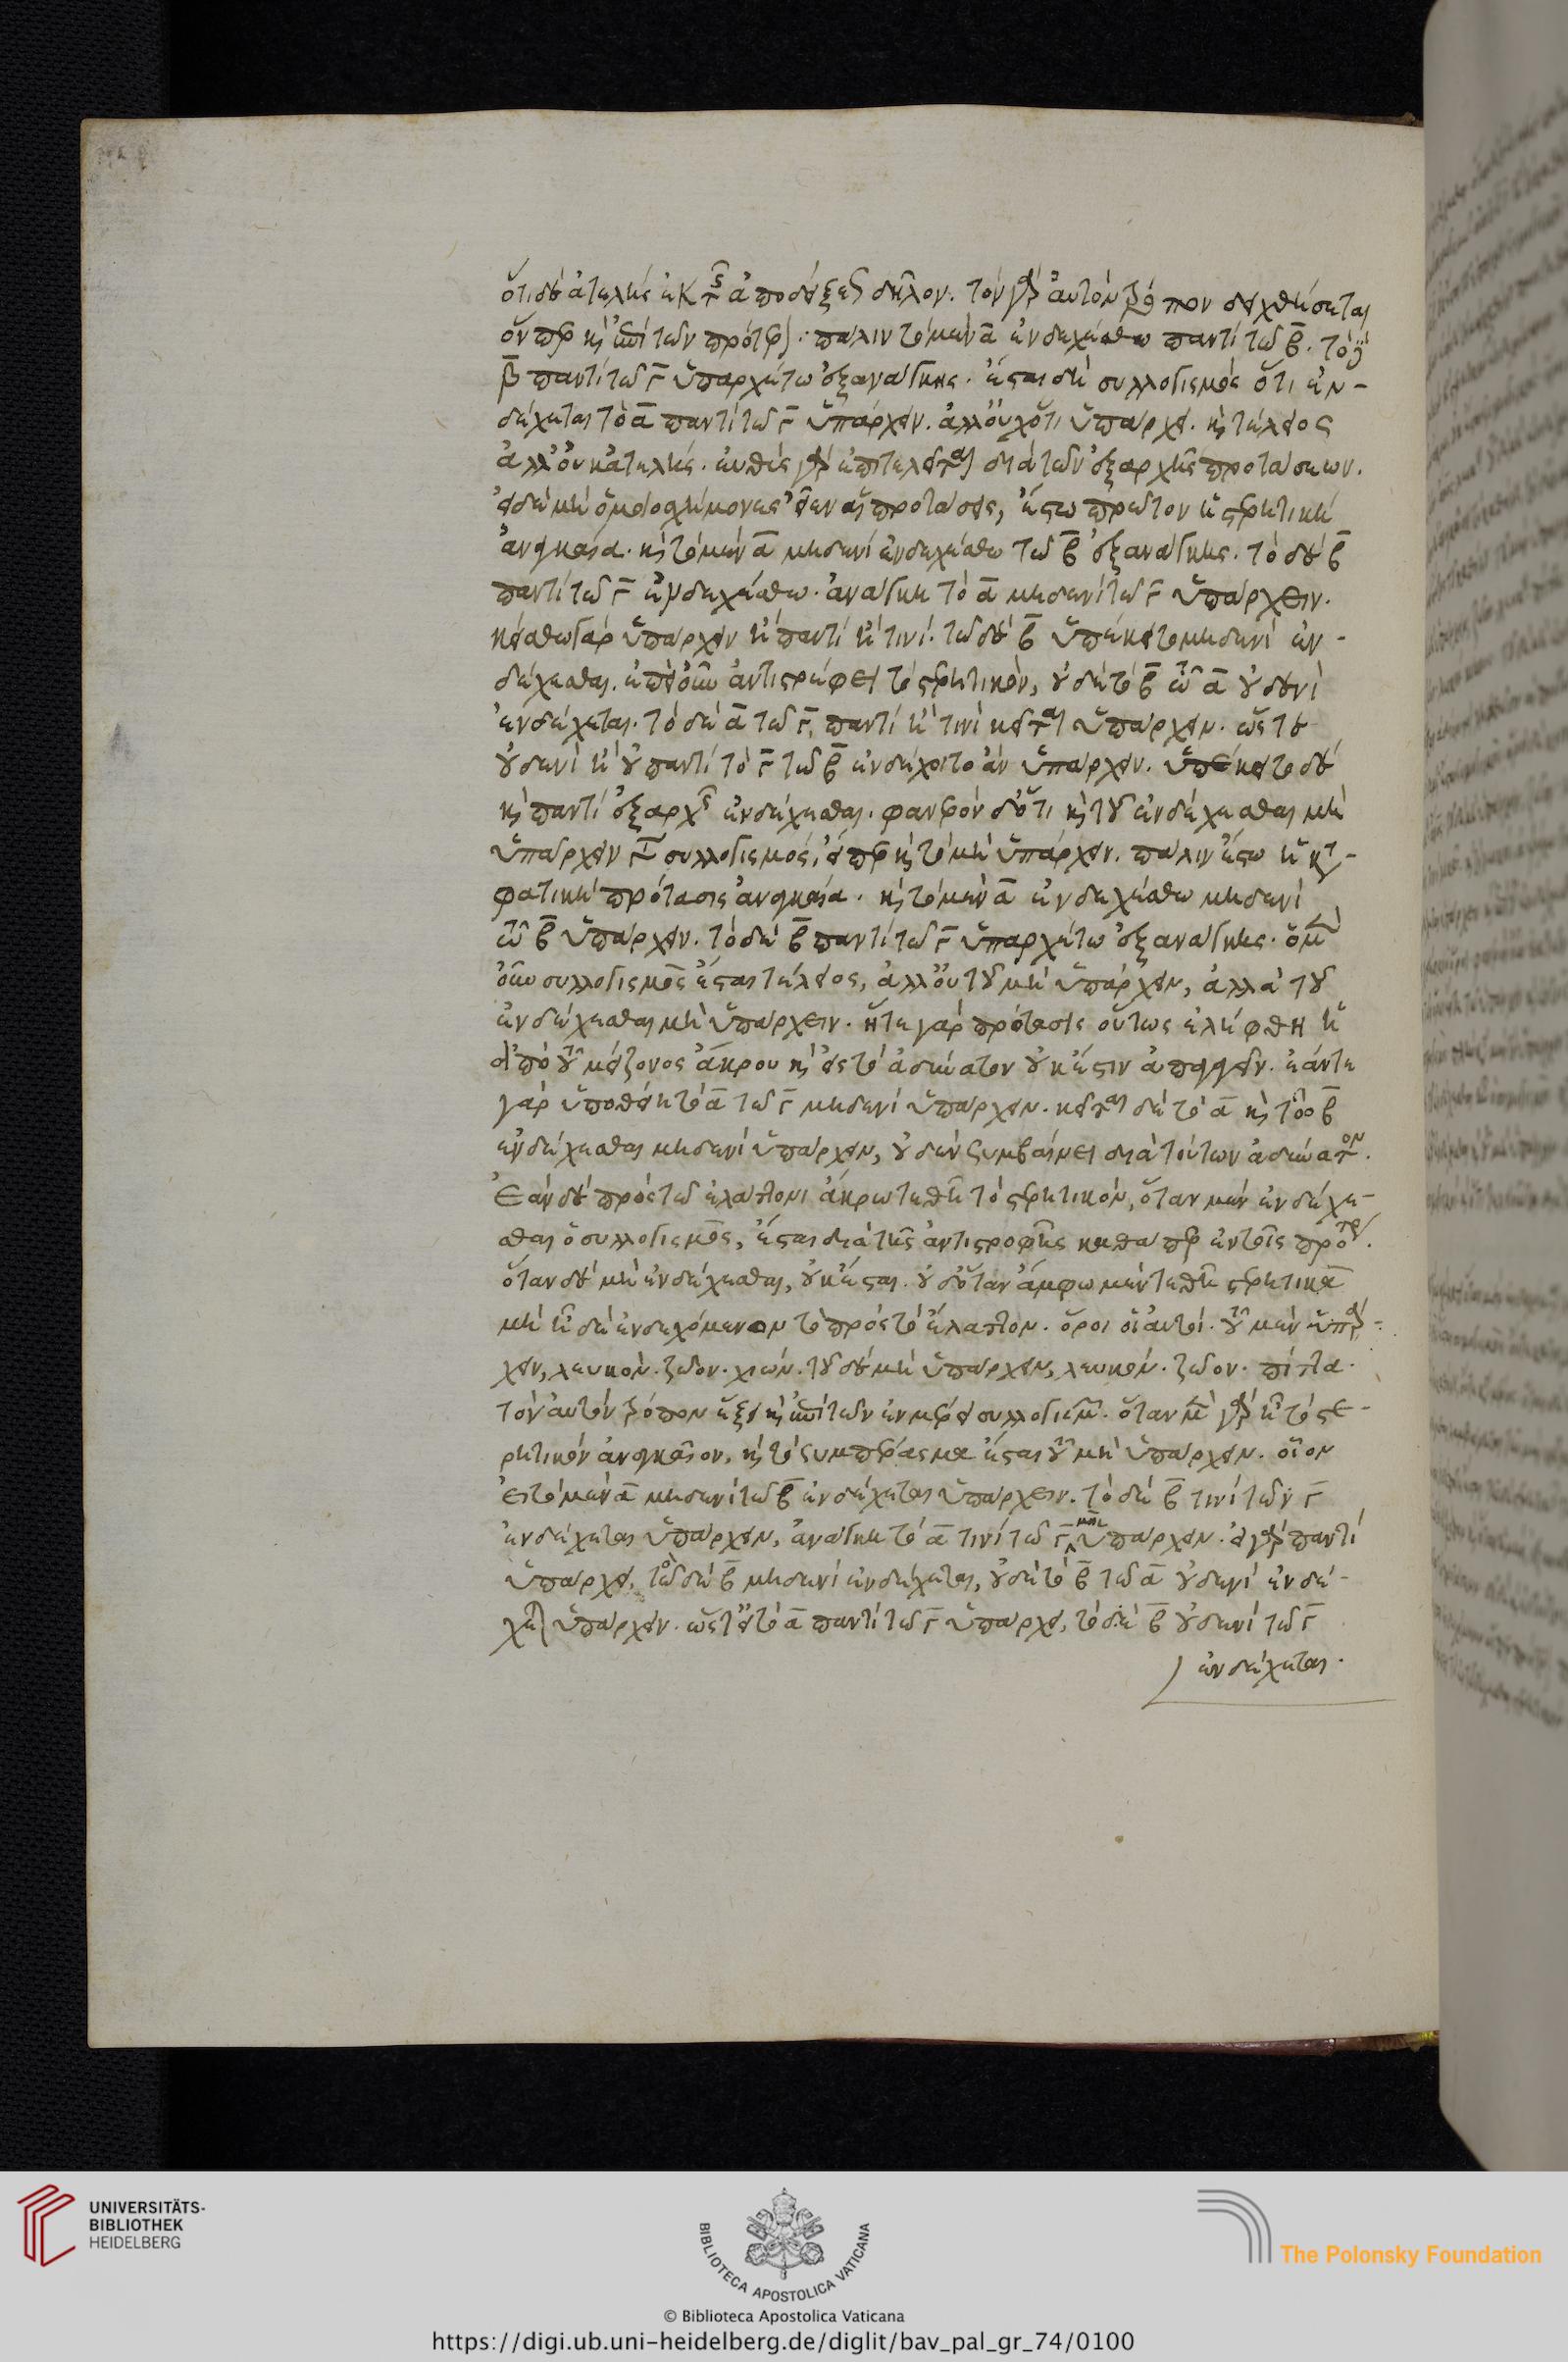 ὅτι δὲ ἀτελὴς ἐκ τῆς ἀποδείξεως δῆλον. τὸν γὰρ αὐτὸν τρόπον δειχθήσεται
ὅνπερ καὶ ἐπὶ τῶν πρότερον· πάλιν τὸ μὲν ᾱ ἐνδεχέσθω παντὶ τῶ β̄. τὸ δὲ
β̄ παντὶ τῶ γ̄ ὑπαρχέτω ἐξ ἀνάγκης. ἔσται δὴ συλλογισμὸς ὅτι ἐν-
δέχεται τὸ ᾱ παντὶ τῶ γ̄ ὑπάρχειν. ἀλλ' οὐχ ὅτι ὑπάρχει. καὶ τέλειος
ἀλλ' οὐκ ἀτελής. εὐθὺς γὰρ ἐπιτελεῖται διὰ τῶν ἐξ ἀρχῆς προτάσεων.
εἰ δὲ μὴ ὁμοιοσχήμονες εἶεν αἱ προτάσεις, ἔστω πρῶτον ἡ στερητικὴ
ἀναγκαία. καὶ τὸ μὲν ᾱ μηδενὶ ἐνδεχέσθω τῶ β̄ ἐξ ἀνάγκης. τὸ δὲ β̄
παντὶ τῶ γ̄ ἐνδεχέσθω. ἀνάγκη τὸ ᾱ μηδενὶ τῶ γ̄ ὑπάρχειν.
κείσθω γὰρ ὑπάρχειν ἢ παντὶ ἢ τινί. τῶ δὲ β̄ ὑπέκειτο μηδενὶ ἐν-
δέχεσθαι. ἐπεὶ οὖν ἀντιστρέφει τὸ στερητικὸν, οὐδὲ τὸ β̄ τῶ ᾱ οὐδενὶ
ἐνδέχεται. τὸ δὲ ᾱ τῶ γ̄, παντὶ ἢ τινὶ κεῖται ὑπάρχειν. ὥστε
οὐδενὶ ἢ οὐ παντὶ τὸ γ̄ τῶ β̄ ἐνδέχοιτο ἂν ὑπάρχειν. ὑπέκειτο δὲ
καὶ παντὶ ἐξ ἀρχῆς ἐνδέχεσθαι. φανερὸν δ' ὅτι καὶ τοῦ ἐνδέχεσθαι μὴ
ὑπάρχειν γίνεται συλλογισμός, εἴπερ καὶ τὸ μὴ ὑπάρχειν. πάλιν ἔστω ἡ κατα-
φατικὴ πρότασις ἀναγκαία. καὶ τὸ μὲν ᾱ ἐνδεχέσθω μηδενὶ
τῶ β̄ ὑπάρχειν. τὸ δὲ β̄ παντὶ τῶ γ̄ ὑπαρχέτω ἐξ ἀνάγκης. ὁ μὲν
οὖν συλλογισμὸς ἔσται τέλειος, ἀλλ' οὐ τοῦ μὴ ὑπάρχειν, ἀλλὰ τοῦ
ἐνδέχεσθαι μὴ ὑπάρχειν. ἥ τε γὰρ πρότασις οὕτως ἐλήφθη ἡ
ἀπὸ τοῦ μείζονος ἄκρου καὶ εἰς τὸ ἀδύνατον οὐκ ἔστιν ἀπαγαγεῖν. ἐάν τε
γὰρ ὑποθείη τὸ ᾱ τῶ γ̄ μηδενὶ ὑπάρχειν. κεῖται δὲ τὸ ᾱ καὶ τῶ β̄
ἐνδέχεσθαι μηδενὶ ὑπάρχειν, οὐδὲν συμβαίνει διὰ τούτων ἀδύνατον.
Ἐὰν δὲ πρὸς τῶ ἐλάττονι ἄκρω τεθῆ τὸ στερητικὸν, ὅταν μὲν ἐνδέχε-
σθαι ὁ συλλογισμὸς, ἔσται διὰ τῆς ἀντιστροφῆς καθάπερ ἐν τοῖς πρότερον.
ὅταν δὲ μὴ ἐνδέχεσθαι, οὐκ ἔσται. οὐδ' ὅταν ἄμφω μὲν τεθῆ στερητικὰ
μὴ ἦ δὲ ἐνδεχόμενον τὸ πρὸς τὸ ἔλαττον. ὅροι οἱ αὐτοί. τοῦ μὲν ὑπάρ-
χειν, λευκόν. ζῶον. χιών. τοῦ δὲ μὴ ὑπάρχειν, λευκόν. ζῶον. πίττα.
τὸν αὐτὸν τρόπον ἕξει καὶ ἐπὶ τῶν ἐν μέρει συλλογισμῶν. ὅταν μὲν γὰρ ἦ τὸ στε-
ρητικὸν ἀναγκαῖον, καὶ τὸ συμπέρασμα ἔσται τοῦ μὴ ὑπάρχειν. οἷον
εἰ τὸ μὲν ᾱ μηδενὶ τῶ β̄ ἐνδέχεται ὑπάρχειν. τὸ δὲ β̄ τινὶ τῶν γ̄
ἐνδέχεται ὑπάρχειν, ἀνάγκη τὸ ᾱ τινὶ τῶ γ̄ μὴ ὑπάρχειν. εἰ γὰρ παντὶ
ὑπάρχει, τῶ δὲ β̄ μηδενὶ ἐνδέχεται, οὐδὲ τὸ β̄ τῶ ᾱ οὐδενὶ ἐνδέ-
χεται ὑπάρχειν. ὥστ' εἰ τὸ ᾱ παντὶ τῶ γ̄ ὑπάρχει, τὸ δὲ β̄ οὐδενὶ τῶ γ̄
ἐνδέχεται.
UNIVERSITÄTS-
BIBLIOTHEK
HEIDELBERG
BIBLIOTECA APOSTOLICA VATICANA
The Polonsky Foundation
© Biblioteca Apostolica Vaticana
https://digi.ub.uni-heidelberg.de/diglit/bav_pal_gr_74/0100